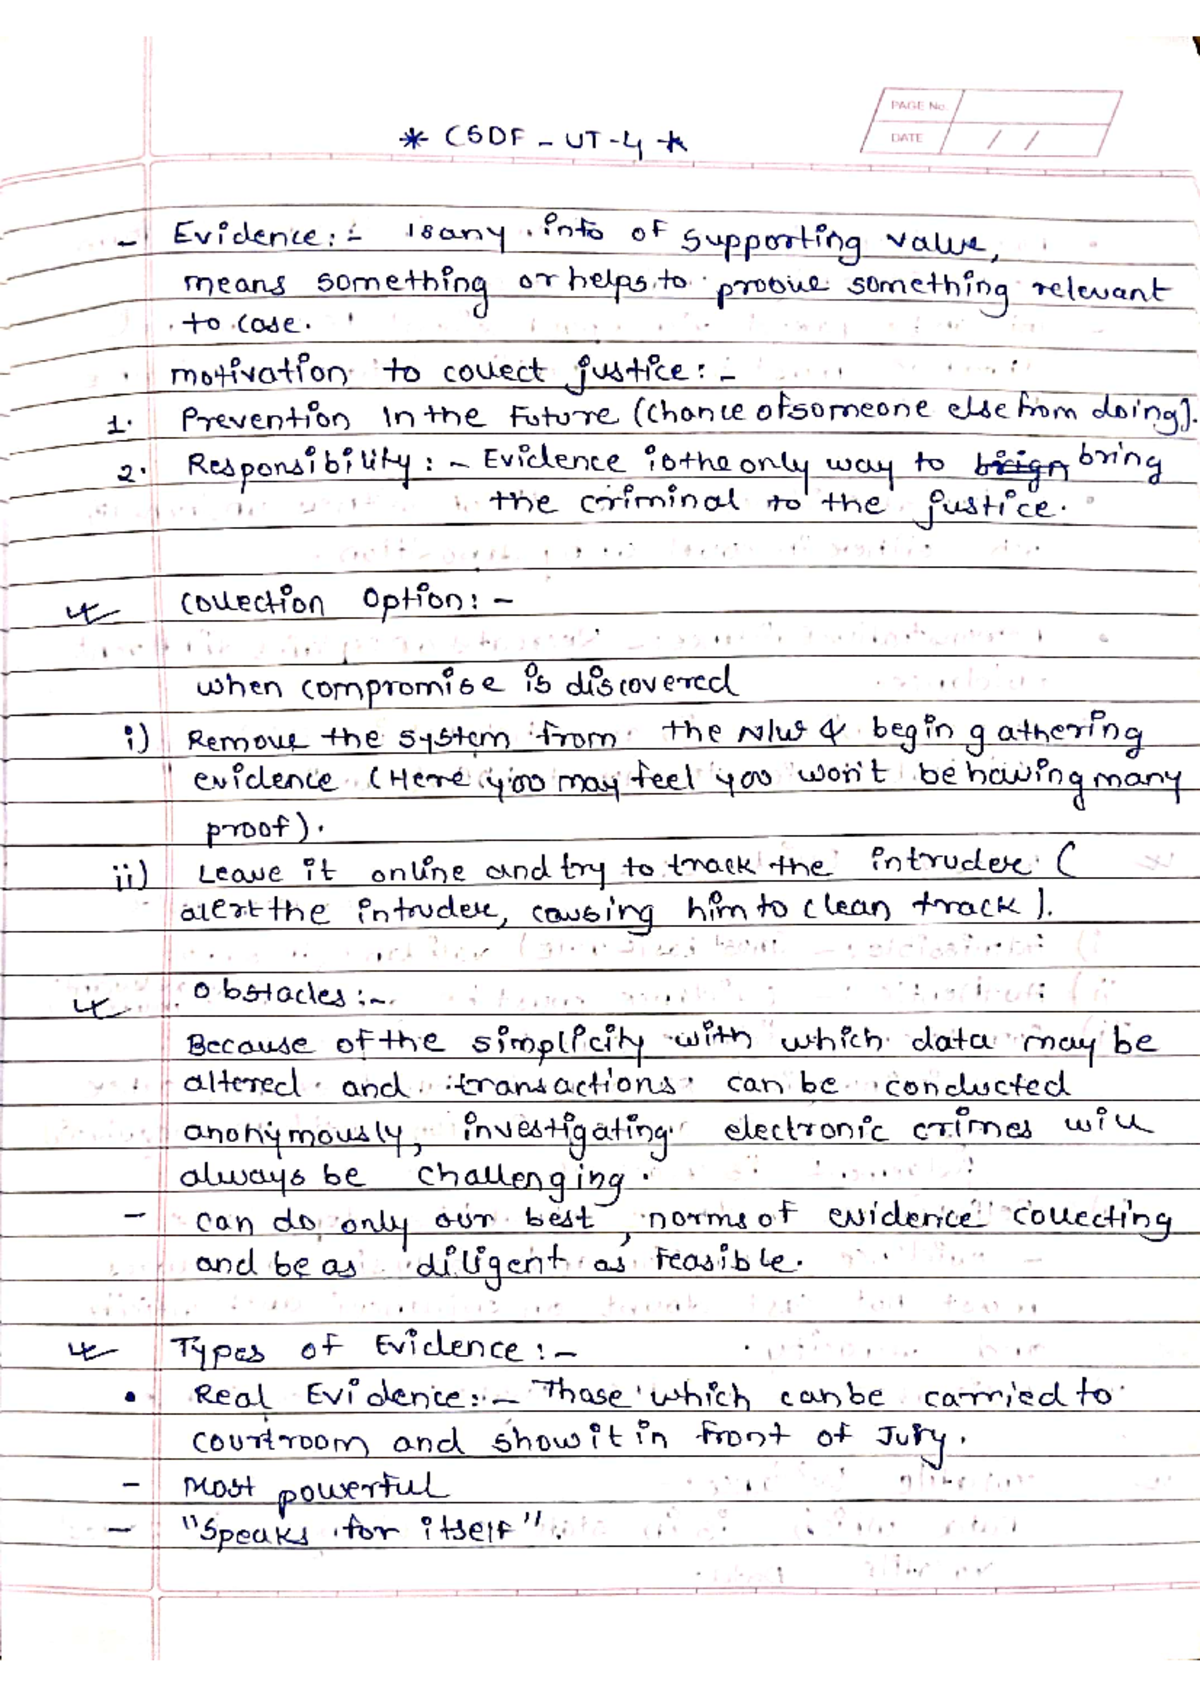 PAGE No.
DATE / /
* CSDF - UT-4 *
- Evidence:- Is any info of supporting value,
means something or helps to proove something relevant
to case.
motivation to collect justice:-
1. Prevention In the Future (Chance of someone else from doing).
2. Responsibility:- Evidence is the only way to bring
the criminal to the justice.
Collection Option:-
when compromise is discovered
i) Remove the system from the N/w & begin gathering
evidence (Here yoo may feel yoo won't be having many
proof).
ii) Leave it online and try to track the intruder (
alert the intruder, causing him to clean track).
Obstacles:-
Because of the simplicity with which data may be
altered and transactions can be conducted
anonymously, investigating electronic crimes will
always be challenging.
- can do only our best, norms of evidence collecting
and be as diligent as feasible.
Types of Evidence:-
• Real Evidence:- Those which can be carried to
courtroom and show it in front of Jury.
- Most powerful
- "Speaks for itself".